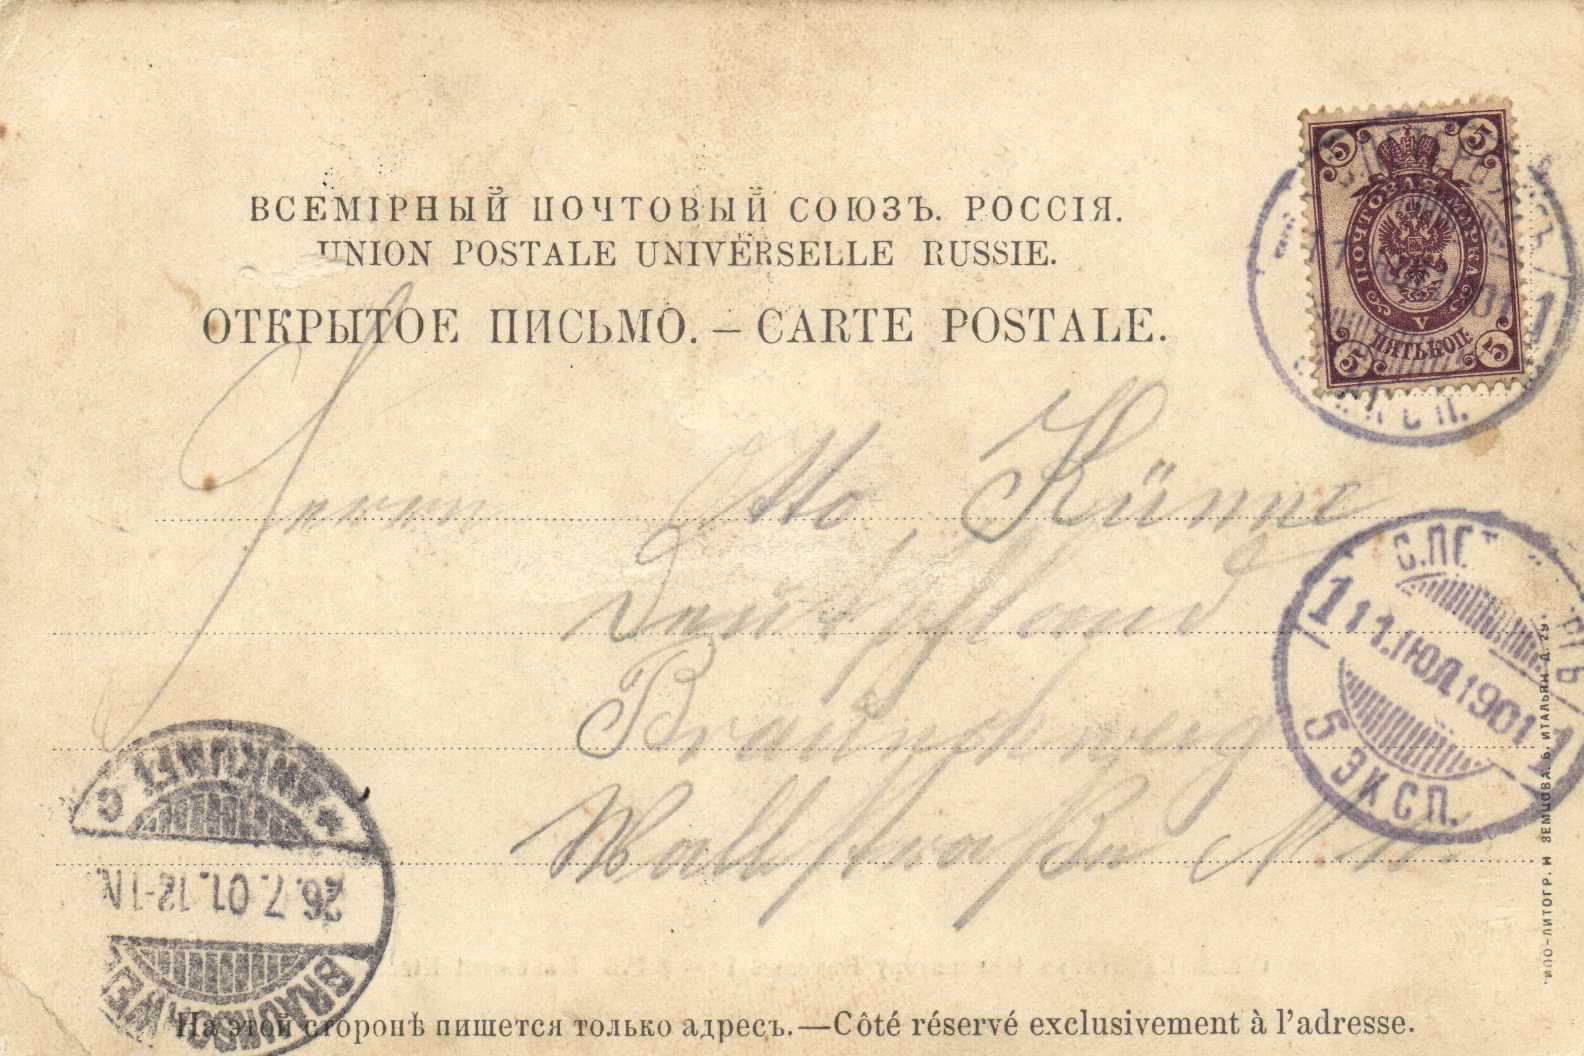 ВСЕМІРНЫЙ ПОЧТОВЫЙ СОЮЗЪ. РОССІЯ.
UNION POSTALE UNIVERSELLE RUSSIE.
ОТКРЫТОЕ ПИСЬМО. – CARTE POSTALE.
5 5
ПОЧТОВАЯ МАРКА
V
ПЯТЬ КОП.
5 5
1
Herrn Otto Künne
Deutschland
Braunschweig
Wallstraße
1 11.ІЮЛ.1901 1
5 ЭКСП.
26.7.01.12-1N.
BRAUNSCHWEIG
На этой сторонѣ пишется только адресъ.—Côté réservé exclusivement à l'adresse.
ЗЕМЦОВА. Б. ИТАЛЬЯН. Д. 29